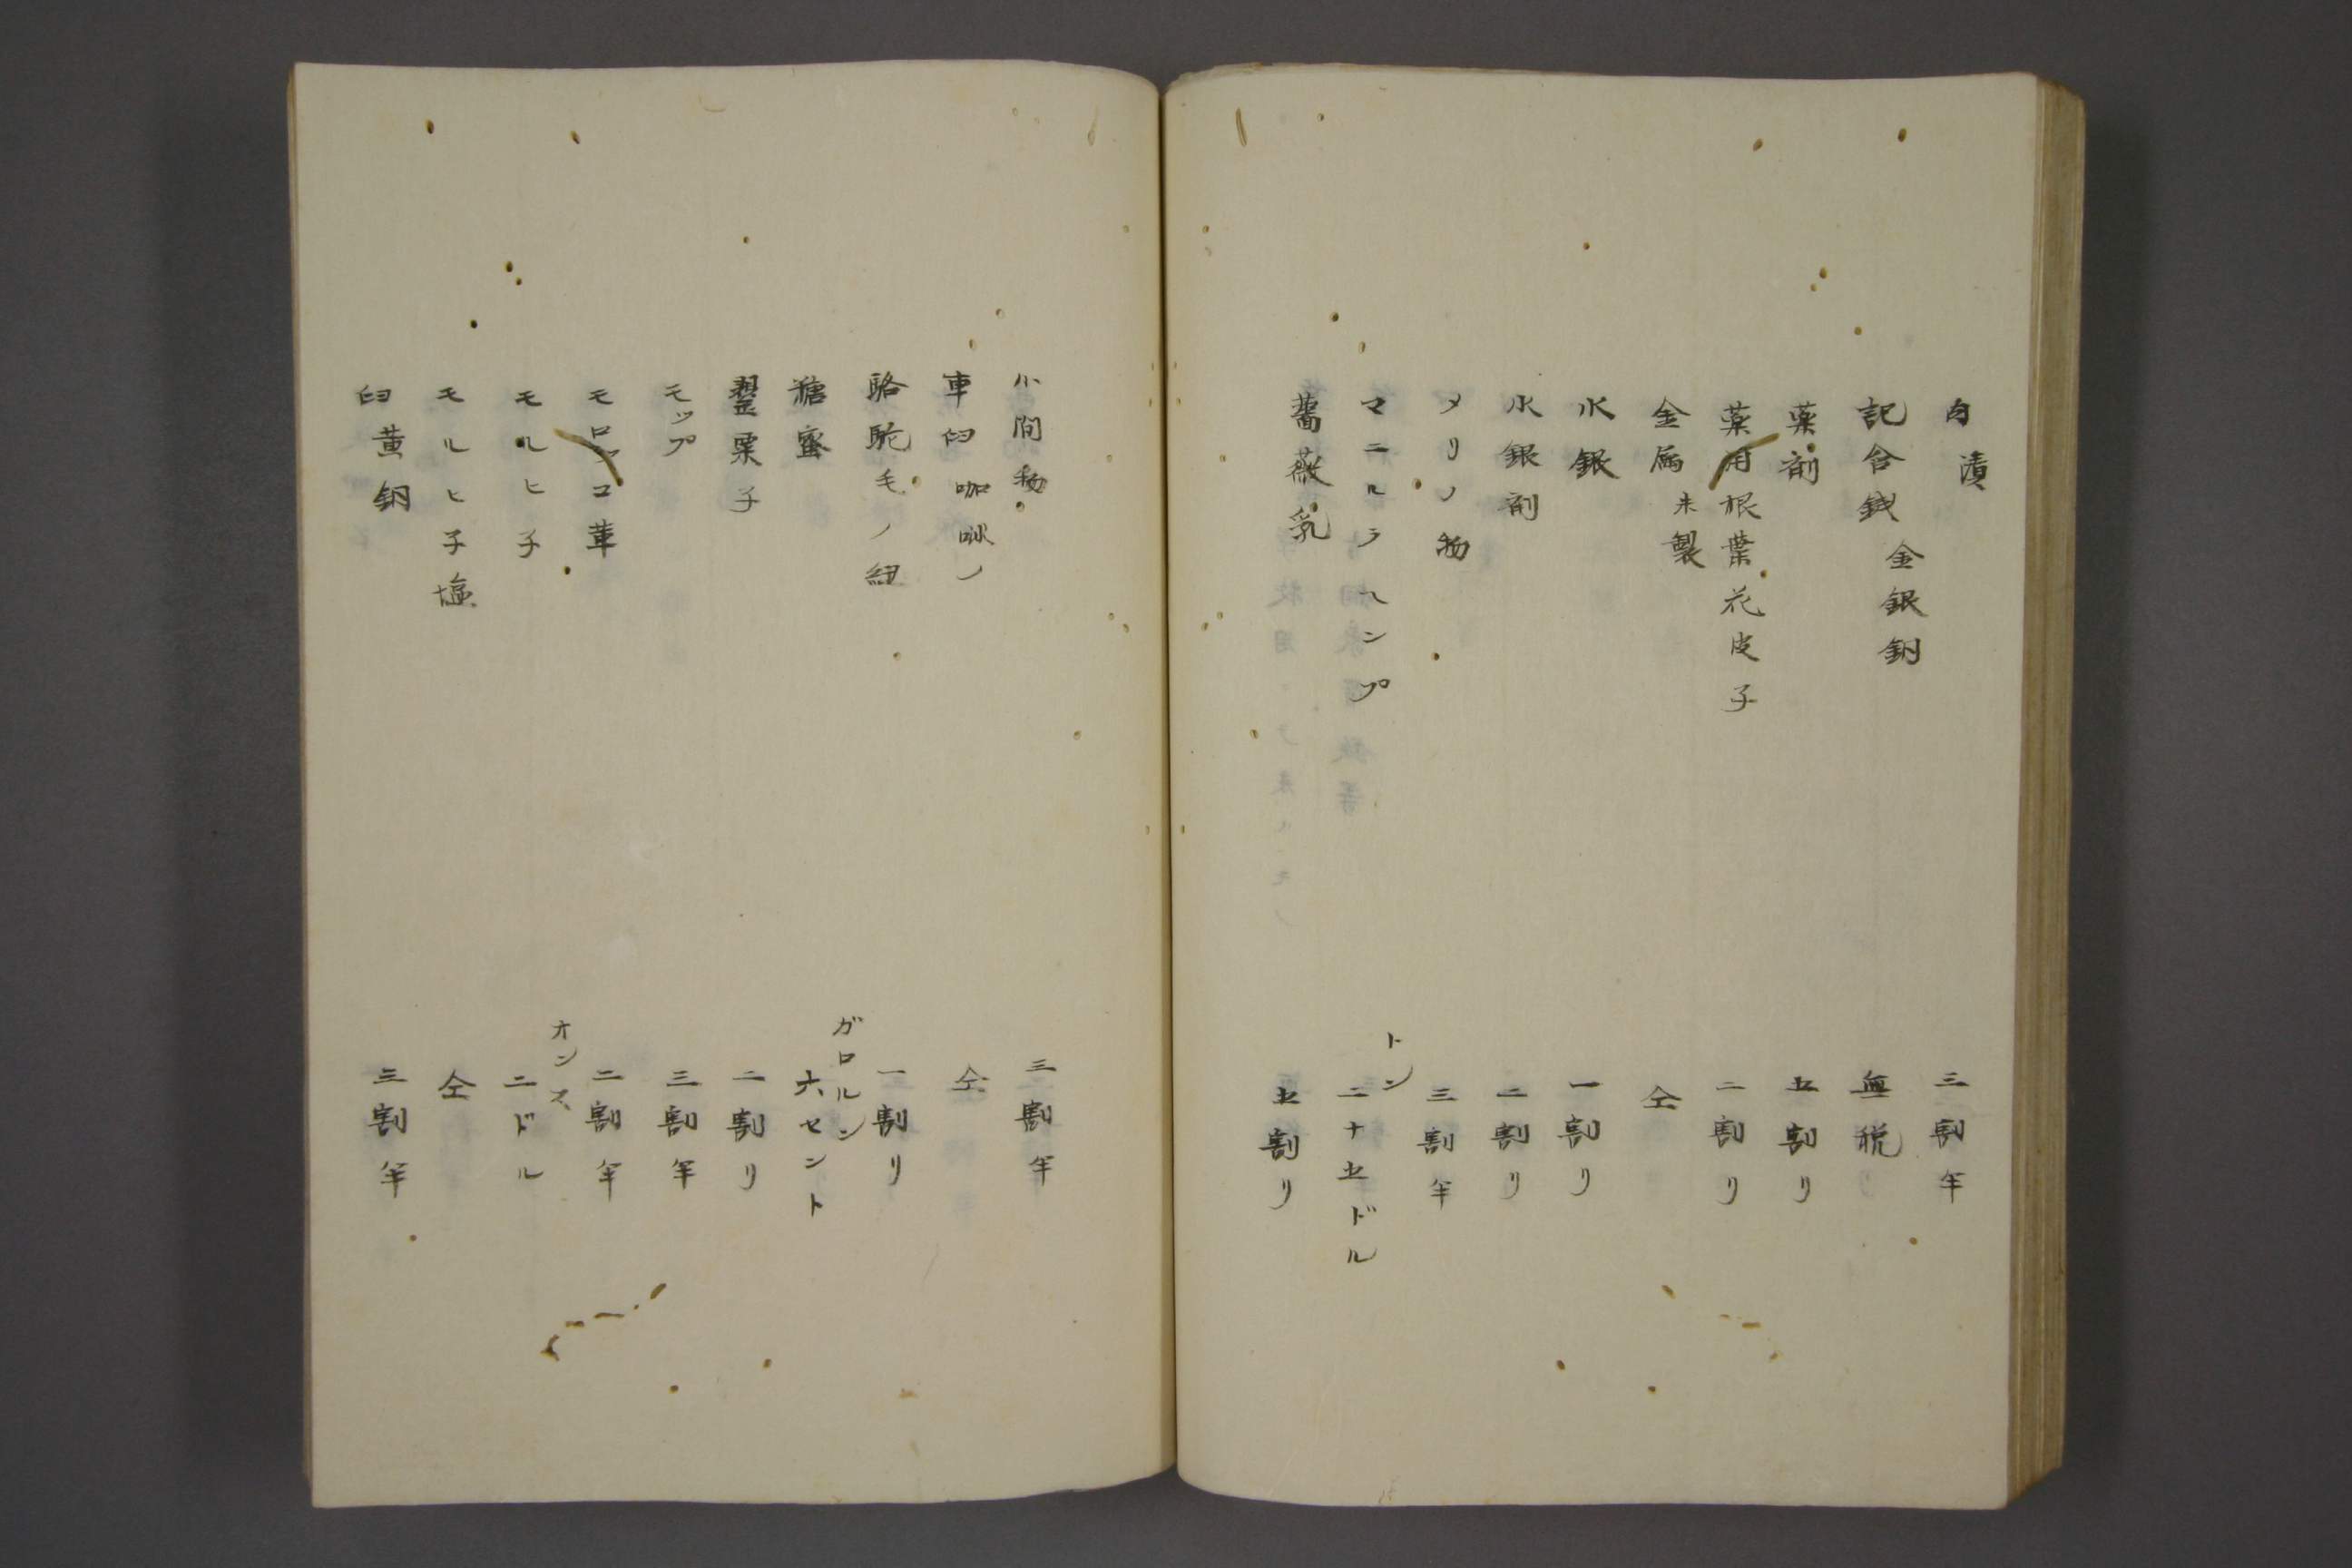 肉漬 三割半
記念銭 金銀銅 無税
薬剤 五割リ
薬用根葉花皮子 二割リ
金属未製 仝
水銀 一割リ
水銀剤 二割リ
メリノ物 三割半
マニルラヘンプ トン 二十五ドル
薔薇乳 五割リ
小間物 三割半
車臼 咖啡ノ 仝
駱駝毛ノ紐 一割リ
糖蜜 ガロルン 六セント
罌粟子 二割リ
モップ 三割半
モロッコ革 二割半
モルヒ子 オンス 二ドル
モルヒ子塩 仝
臼黄銅 三割半